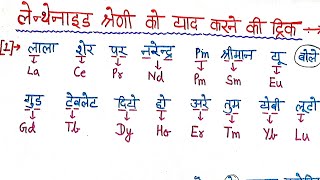 लेन्थेनाइड श्रेणी को याद करने की ट्रिक →
[1]→ लाला शेर पर नरेन्द्र Pm श्रीमान यू बोले
La Ce Pr Nd Pm Sm Eu
गुड टेबलेट दियो हो अरे तुम येबी लूटो
Gd Tb Dy Ho Er Tm Yb Lu